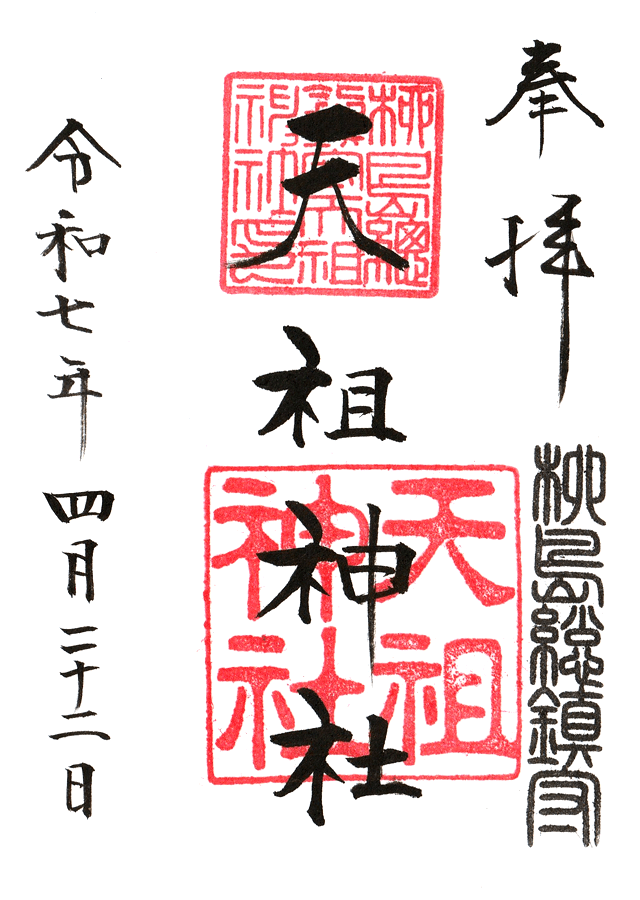 奉拝
柳島総鎮守
天祖神社
柳島総鎮守天祖神社印
天祖神社
令和七年四月二十二日